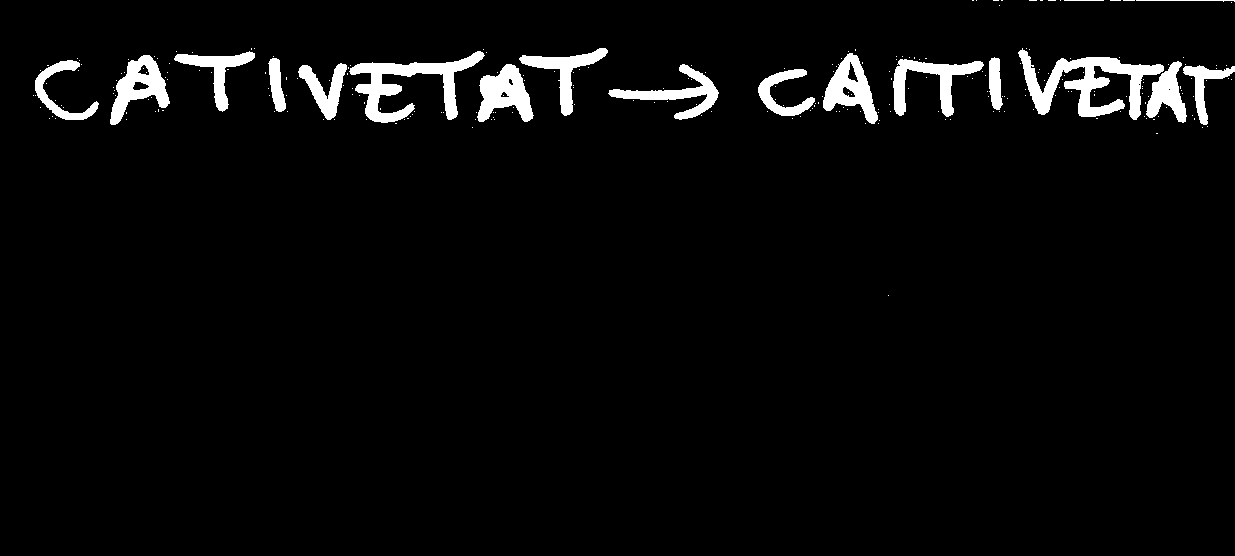 CATIVETAT → CAITIVETAT